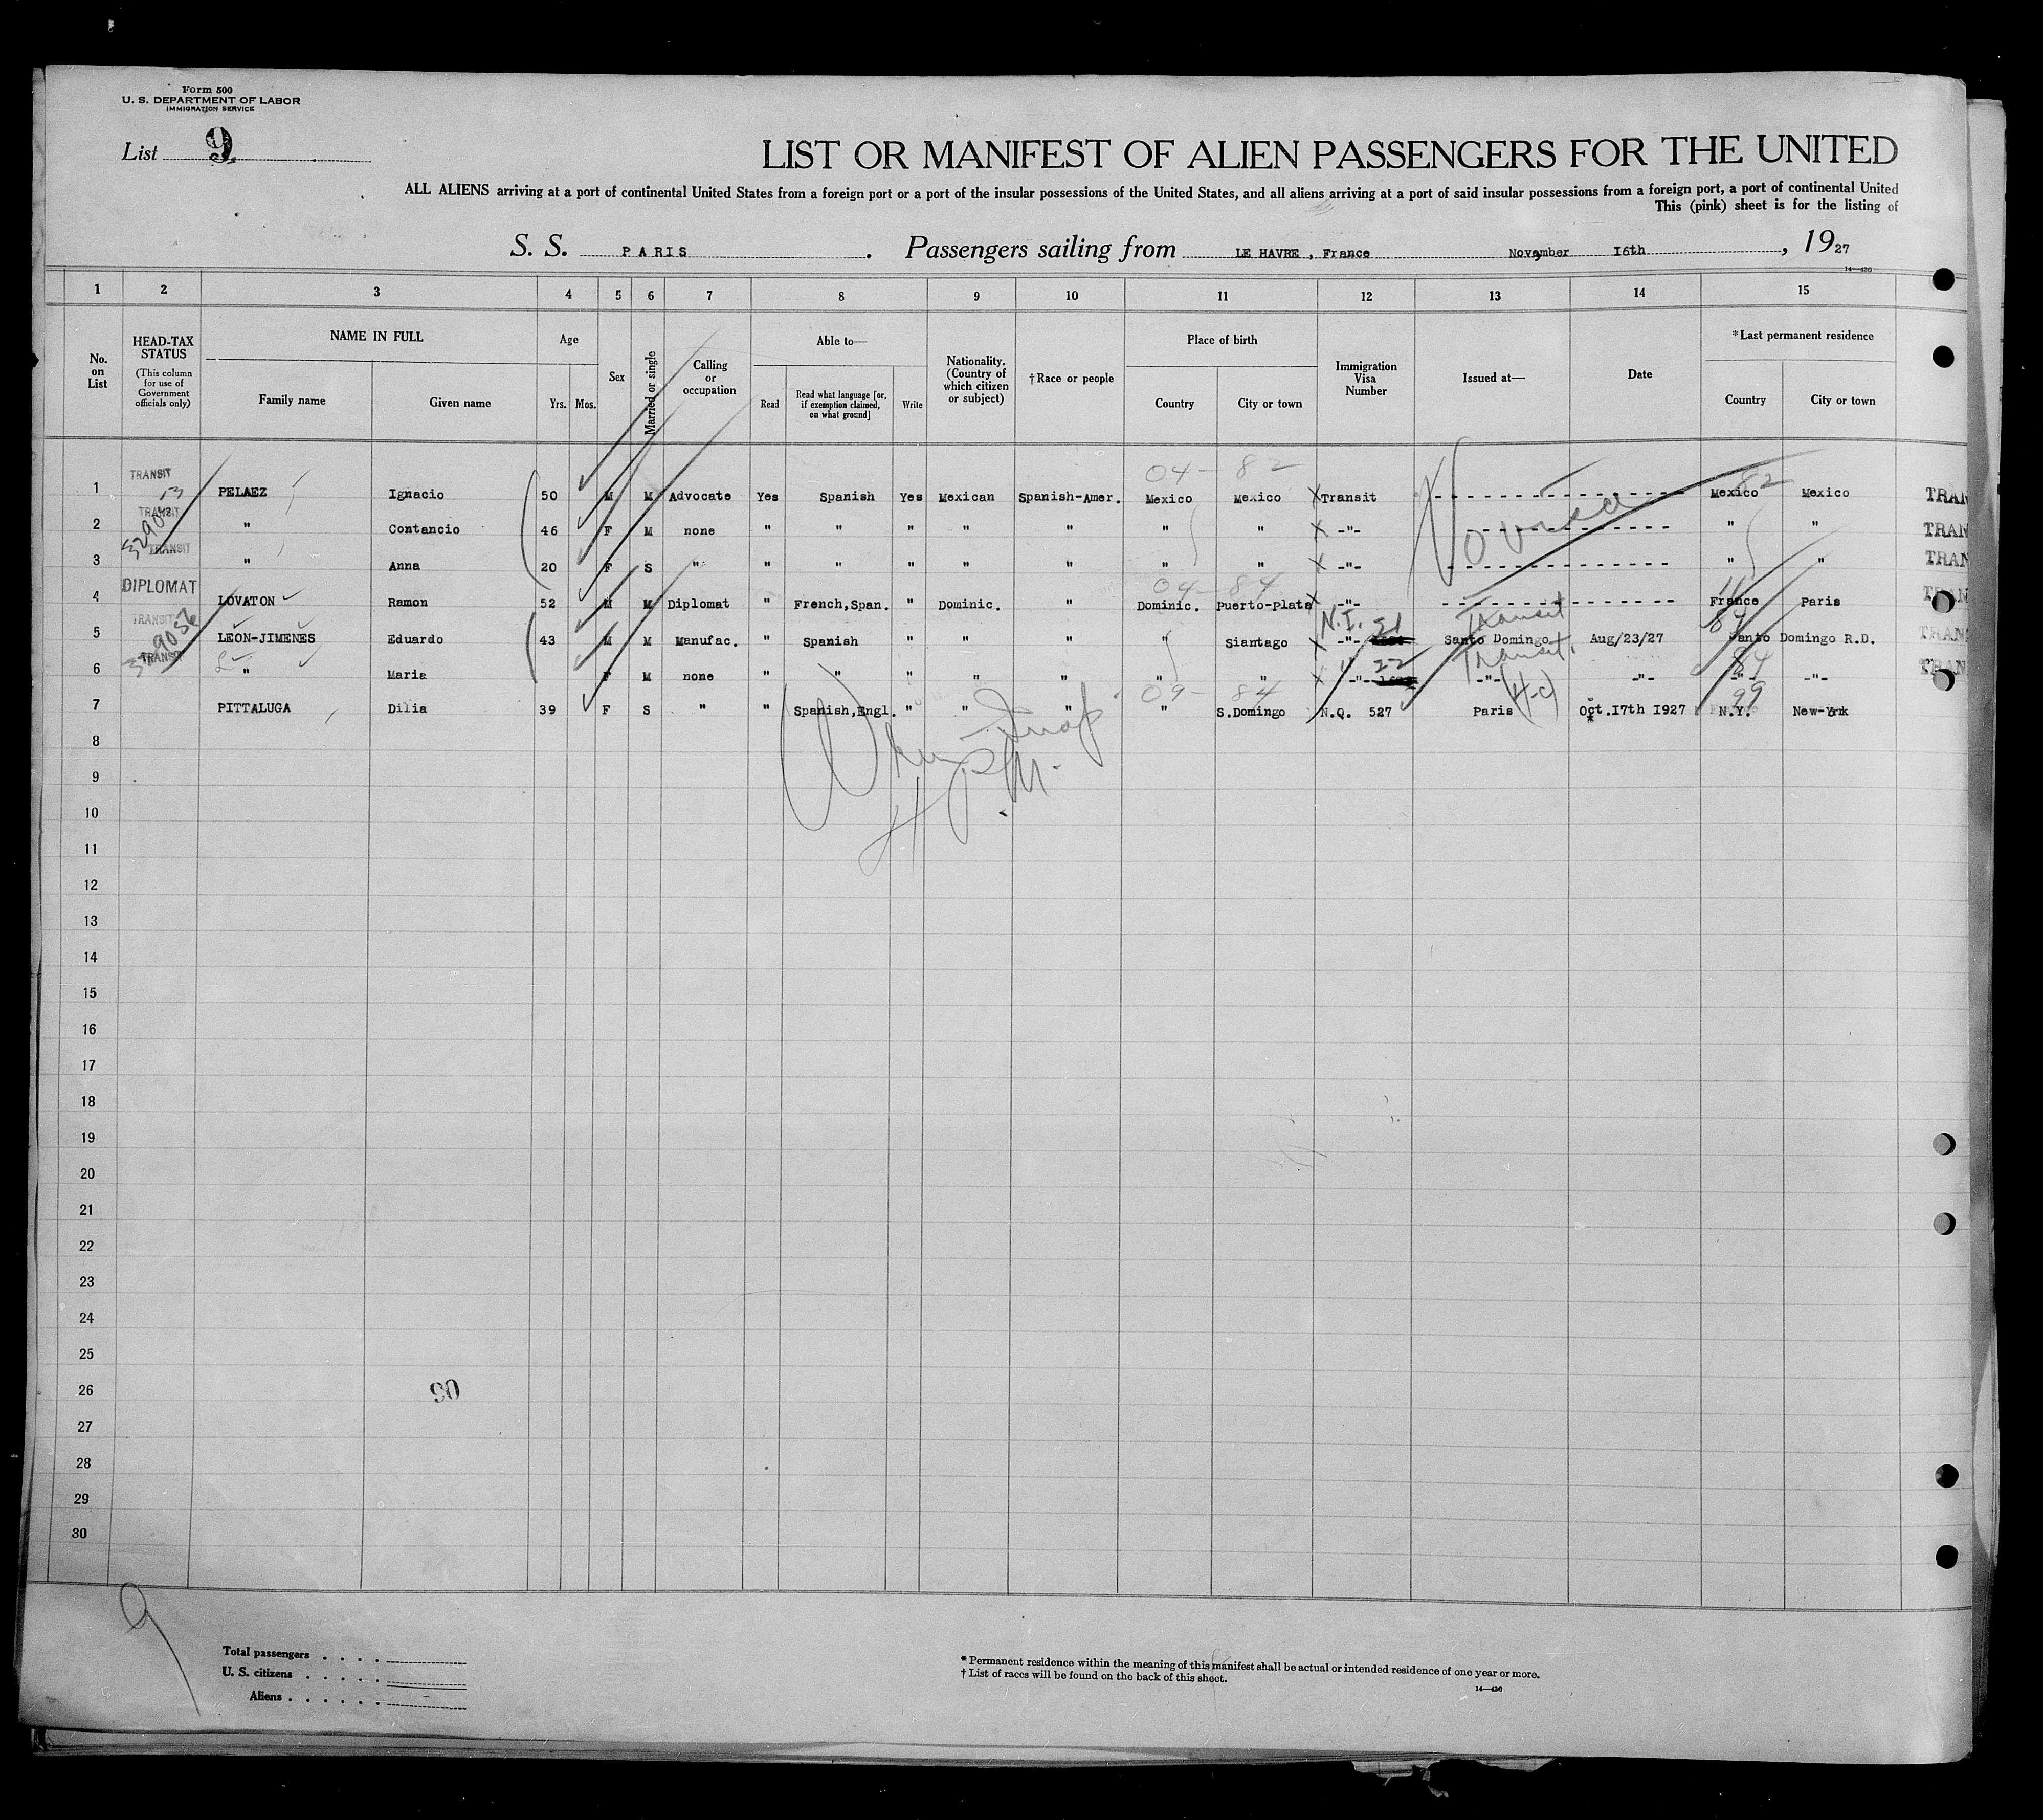 Form 500
U. S. DEPARTMENT OF LABOR
IMMIGRATION SERVICE
List 9
LIST OR MANIFEST OF ALIEN PASSENGERS FOR THE UNITED
ALL ALIENS arriving at a port of continental United States from a foreign port or a port of the insular possessions of the United States, and all aliens arriving at a port of said insular possessions from a foreign port, a port of continental United
This (pink) sheet is for the listing of
S. S. PARIS. Passengers sailing from LE HAVRE, France November 16th, 1927
14—430
1 2 3 4 5 6 7 8 9 10 11 12 13 14 15
No. on List HEAD-TAX STATUS (This column for use of Government officials only) NAME IN FULL Family name Given name Age Yrs. Mos. Sex Married or single Calling or occupation Able to— Read Read what language [or, if exemption claimed, on what ground] Write Nationality. (Country of which citizen or subject) †Race or people Place of birth Country City or town Immigration Visa Number Issued at— Date *Last permanent residence Country City or town
04 - 82
1 TRANSIT PELAEZ Ignacio 50 M M Advocate Yes Spanish Yes Mexican Spanish-Amer. Mexico Mexico X Transit No visa 82 Mexico Mexico TRAN
2 TRANSIT " Contancio 46 F M none " " " " " " " X -"- " " TRAN
3 TRANSIT " Anna 20 F S " " " " " " " " X -"- " " TRAN
04 - 84
4 DIPLOMAT LOVATON Ramon 52 M M Diplomat " French,Span. " Dominic. " Dominic. Puerto-Plata X -"- France Paris TRAN
N.I. 21 Transit 84
5 TRANSIT LEON-JIMENES Eduardo 43 M M Manufac. " Spanish " " " " Siantago X -"- Santo Domingo Aug/23/27 Santo Domingo R.D. TRAN
" 22 Transit 84
6 TRANSIT " Maria 39056 F M none " " " " " " " X -"- -"- -"- -"- -"- TRAN
09 - 84 (4-c) 99
7 PITTALUGA Dilia 39 F S " " Spanish,Engl. " " " " S.Domingo N.Q. 527 Paris Oct.17th 1927 N.Y. New-York
8
9
10
11
12
13
14
15
16
17
18
19
20
21
22
23
24
25
26
27
28
29
30
90
9
Total passengers
U. S. citizens
Aliens
* Permanent residence within the meaning of this manifest shall be actual or intended residence of one year or more.
† List of races will be found on the back of this sheet.
14—430